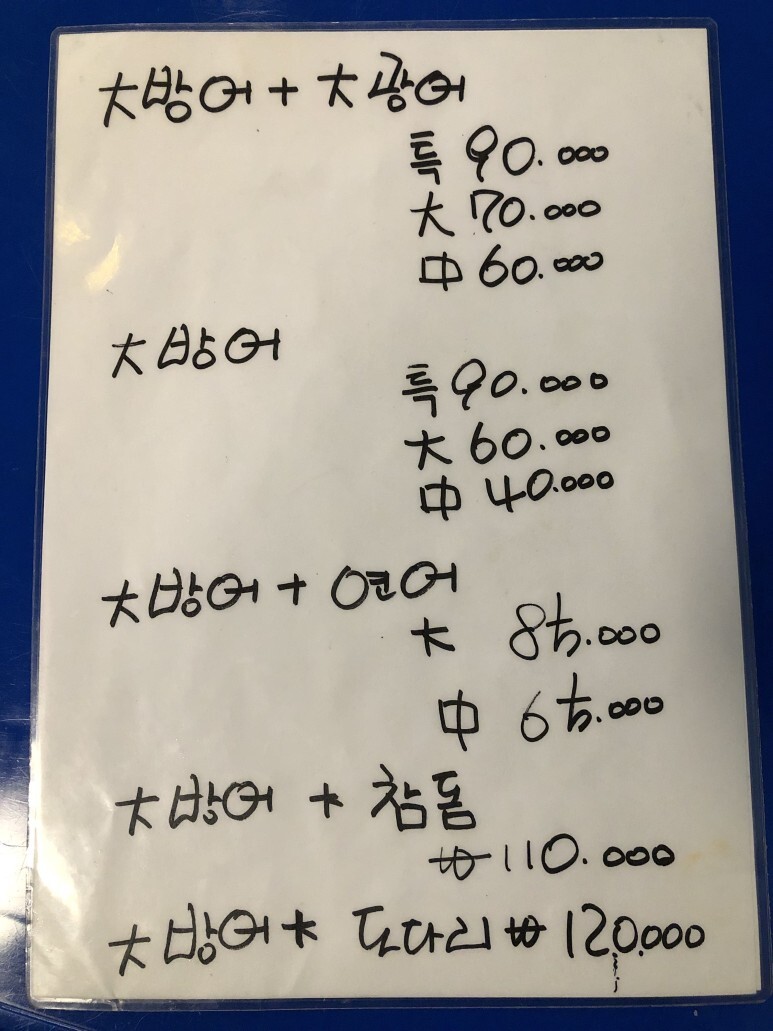 大방어 + 大광어
특 90.000
大 70.000
中 60.000
大방어
특 90.000
大 60.000
中 40.000
大방어 + 연어
大 85.000
中 65.000
大방어 + 참돔
₩110.000
大방어 + 도다리 ₩120.000